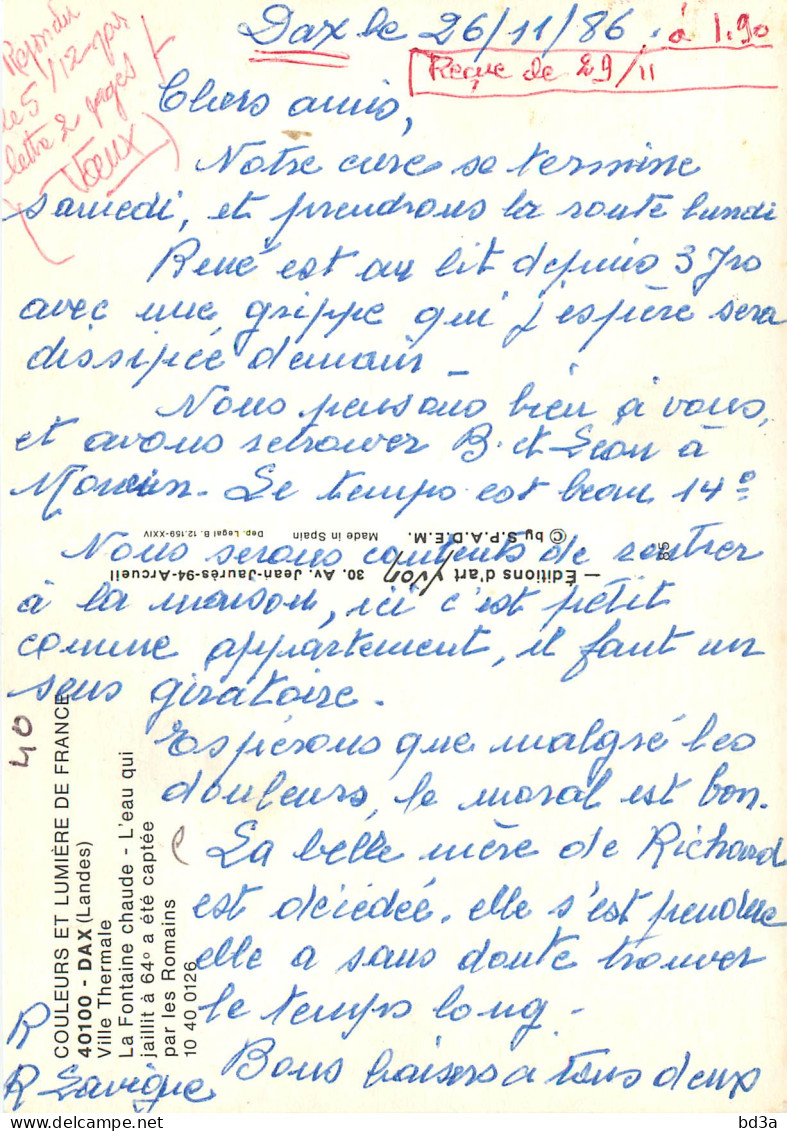 Dax le 26/11/86. à 1.90
Reçue le 29/11
Répondu
le 5/12 par
lettre 2 pages
(Voeux)
Chers amis,
Notre cure se termine
samedi, et prendrons la route lundi
René est au lit depuis 3 Jrs
avec une grippe qui j'espère sera
dissipée demain -
Nous pensons bien à vous,
et avons retrouver B. et Léon à
Le temps est beau 14°
Nous serons contents de rentrer
à la maison, ici c'est petit
comme appartement, il faut un
sens giratoire.
Espérons que malgré les
douleurs, le moral est bon.
La belle mère de Richard
est décédée, elle s'est pendue
elle a sans doute trouver
le temps long -
Bons baisers à tous deux
R
R Lavigne
40
COULEURS ET LUMIÈRE DE FRANCE
40100 - DAX (Landes)
Ville Thermale
La Fontaine chaude - L'eau qui
jaillit à 64° a été captée
par les Romains
10 40 0126
— Éditions d'art Yvon 30. Av. Jean-Jaurès-94-Arcueil
© by S.P.A.D.E.M. Made in Spain Dep. Legal B. 12.159-XXIV
delcampe.net
bd3a